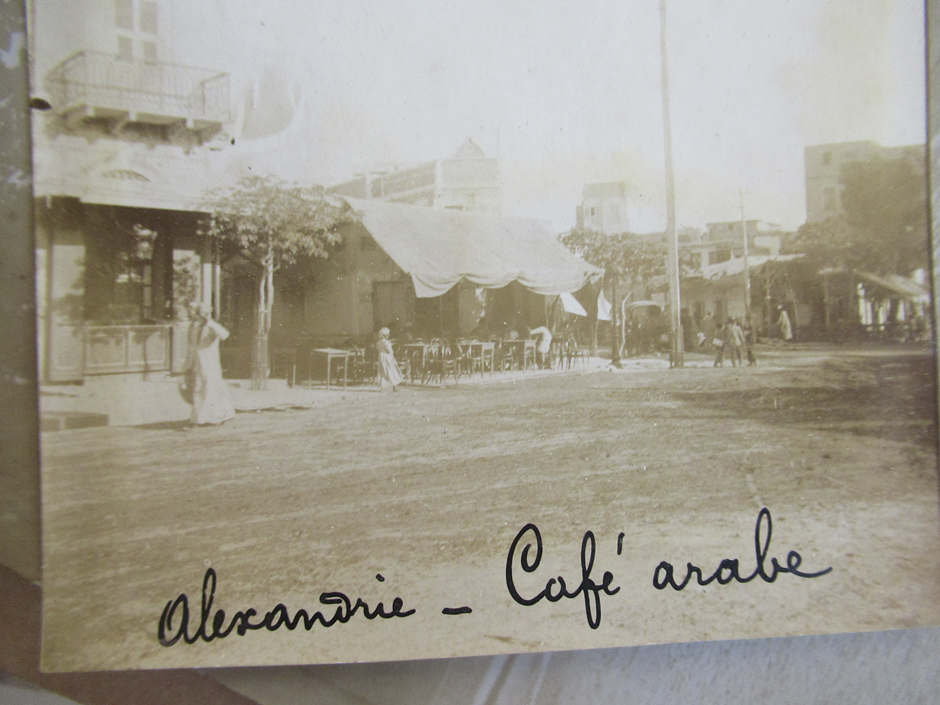 Alexandrie - Café arabe